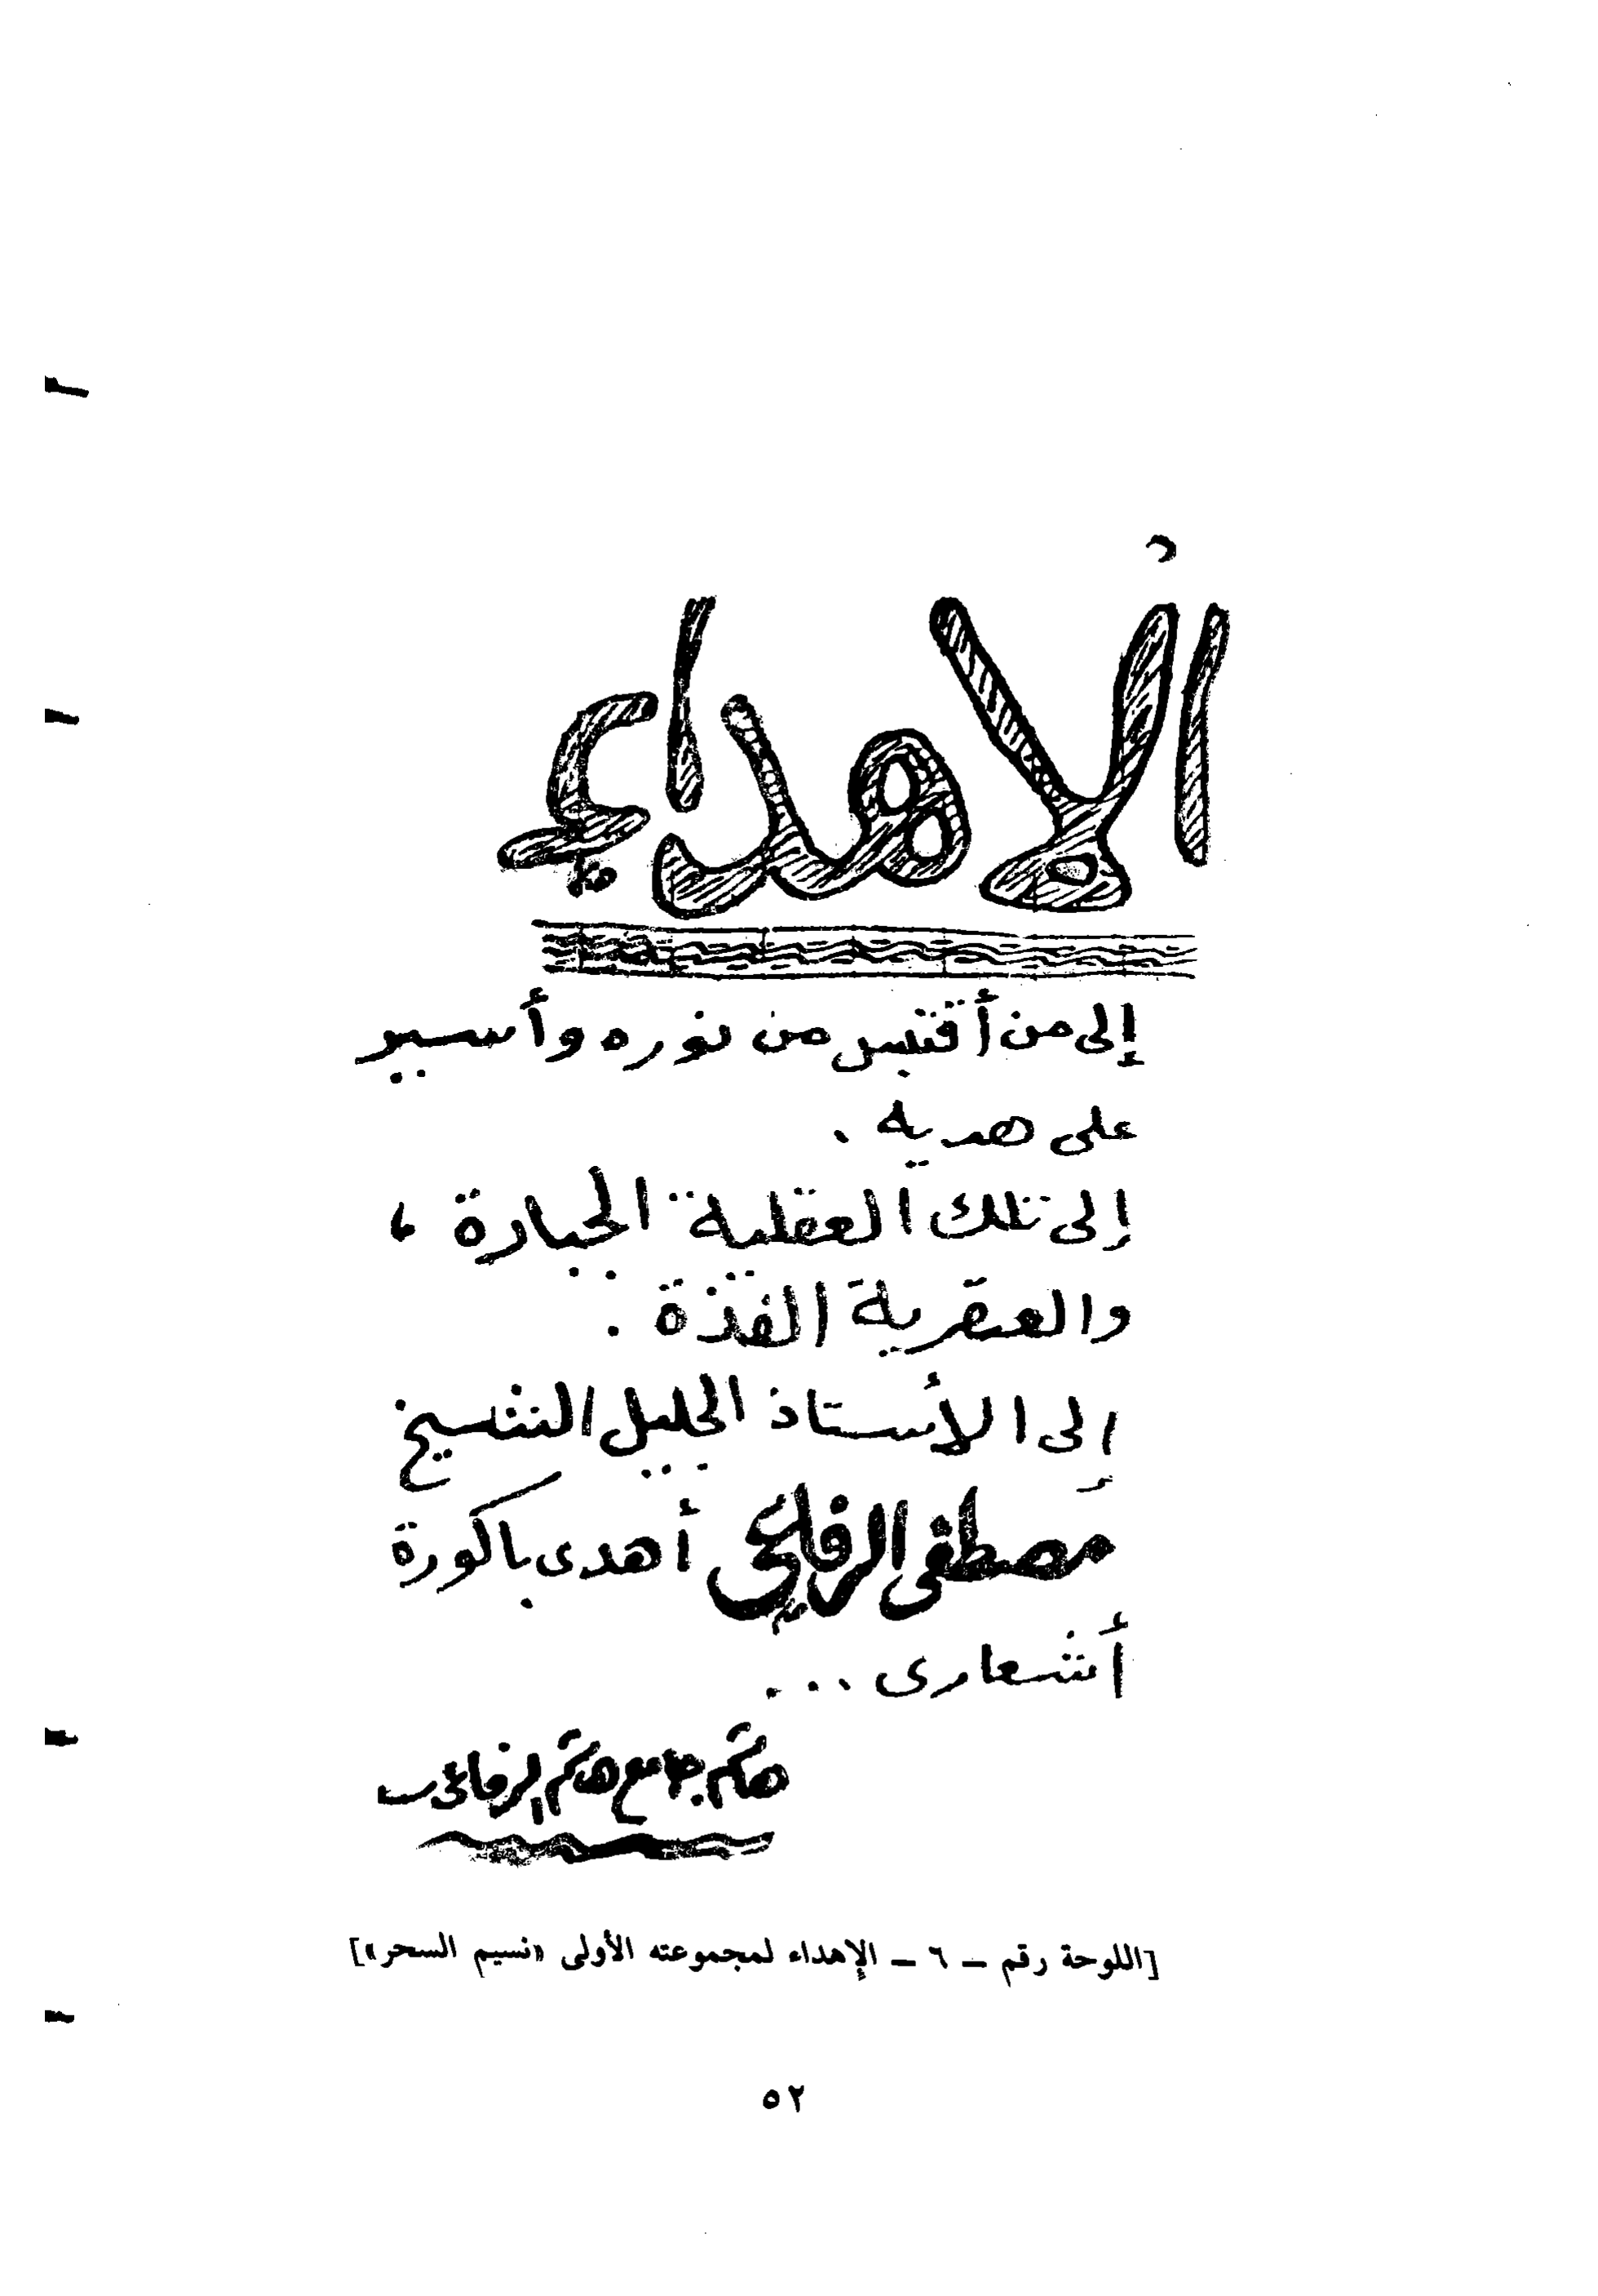 الاهداء
إلى من أقتبس من نوره وأسير
على هديه .
إلى تلك العقلية الجبارة ،
والعبقرية الفذة .
إلى الأستاذ الجليل الشيخ
مصطفى الرفاعى أهدى باكورة
أشعارى ...
هاشم جامع هاشم الرفاعى
[اللوحة رقم – ٦ – الإهداء لمجموعته الأولى «نسيم السحر»]
٥٢